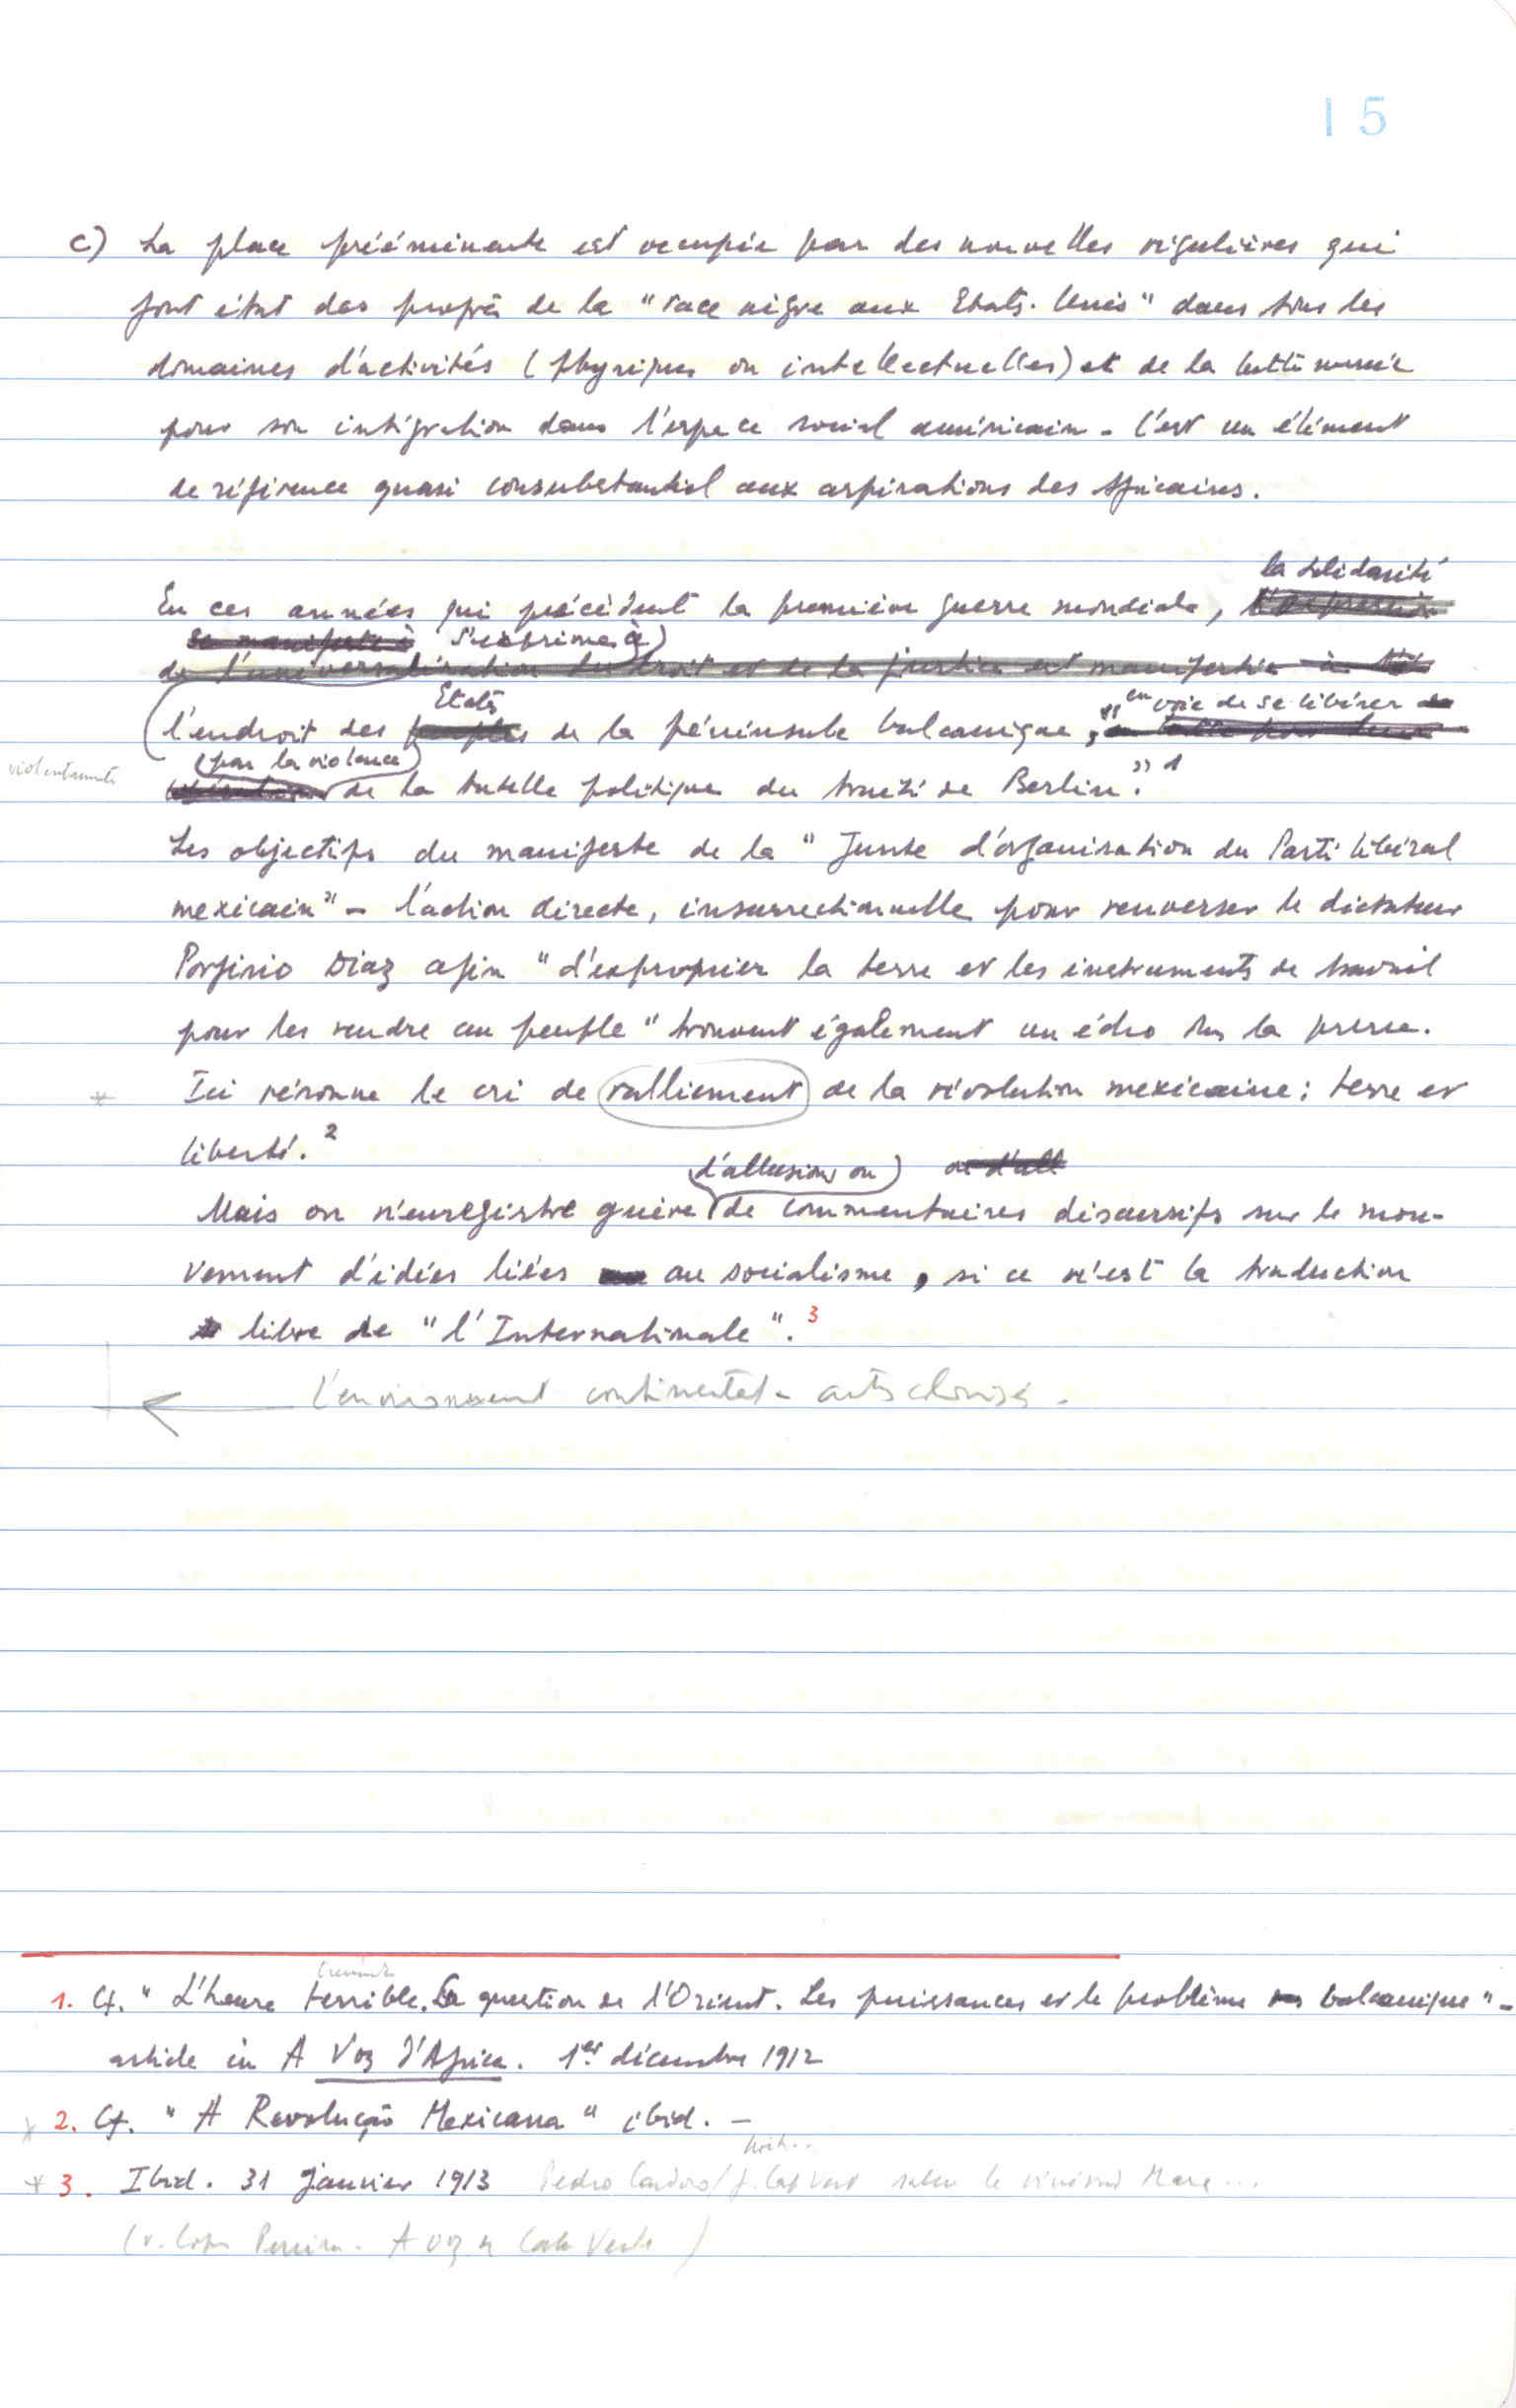 15
c) La place prééminente est occupée par des nouvelles régulières qui
font état des progrès de la "race nègre aux Etats-Unis" dans tous les
domaines d'activités (physiques ou intellectuelles) et de la lutte menée
pour son intégration dans l'espace social américain. C'est un élément
de référence quasi consubstantiel aux aspirations des Africains.
la solidarité
En ces années qui précèdent la première guerre mondiale, l'expression
se manifeste à s'exprime à
de l'universalisation du droit et de la justice est manifestée à
Etats en voie de se libérer de
l'endroit des peuples de la péninsule balcanique, "en lutte pour leur
par la violence
violemment
libération de la tutelle politique du traité de Berlin." 1
Les objectifs du manifeste de la "Junte d'organisation du Parti libéral
mexicain" - l'action directe, insurrectionnelle pour renverser le dictateur
Porfirio Diaz afin "d'exproprier la terre et les instruments de travail
pour les rendre au peuple" trouvent également un écho dans la presse.
* Ici résonne le cri de ralliement de la révolution mexicaine : terre et
liberté. 2
d'allusions ou ou d'all
Mais on n'enregistre guère de commentaires discursifs sur le mou-
vement d'idées liées au socialisme, si ce n'est la traduction
libre de "l'Internationale". 3
L'environnement continental
1. Cf. "L'heure terrible. La question de l'Orient. Les puissances et le problème balcanique" -
article in A Voz d'Africa. 1er décembre 1912
* 2. Cf. "A Revolução Mexicana" ibid. -
* 3. Ibid. 31 janvier 1913 Pedro Cardoso / Cap Vert salue le Marx ...
(v. Lopes Pereira. A voz de Cabo Verde)